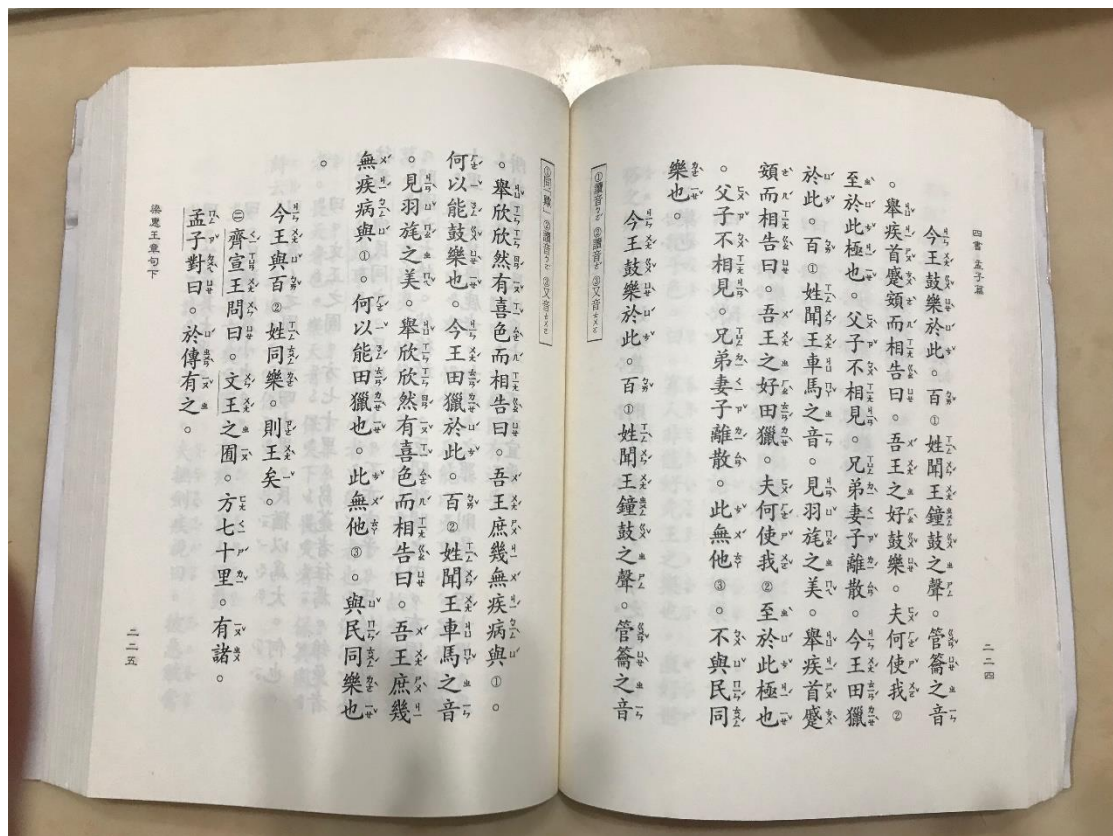 四書 孟子篇
今王鼓樂於此。百①姓聞王鐘鼓之聲。管籥之音
。舉疾首蹙頞而相告曰。吾王之好鼓樂。夫何使我②
至於此極也。父子不相見。兄弟妻子離散。今王田獵
於此。百①姓聞王車馬之音。見羽旄之美。舉疾首蹙
頞而相告曰。吾王之好田獵。夫何使我②至於此極也
。父子不相見。兄弟妻子離散。此無他③。不與民同
樂也。
今王鼓樂於此。百①姓聞王鐘鼓之聲。管籥之音
二二四
①讀音ㄅㄛˊ ②讀音ㄜˇ ③又音ㄊㄨㄛ
①同「歟」 ②讀音ㄅㄛˊ ③又音ㄊㄨㄛ
。舉欣欣然有喜色而相告曰。吾王庶幾無疾病與①。
何以能鼓樂也。今王田獵於此。百②姓聞王車馬之音
。見羽旄之美。舉欣欣然有喜色而相告曰。吾王庶幾
無疾病與①。何以能田獵也。此無他③。與民同樂也
。
今王與百②姓同樂。則王矣。
㊁齊宣王問曰。文王之囿。方七十里。有諸。
孟子對曰。於傳有之。
梁惠王章句下
二二五